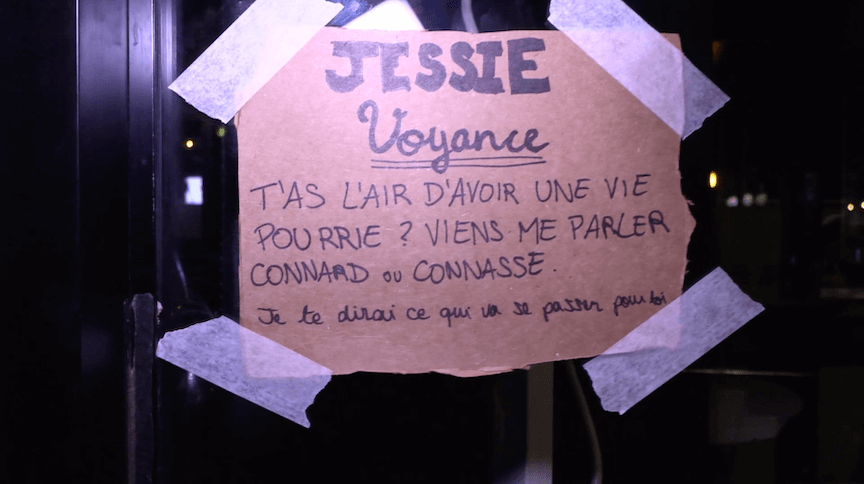 JESSIE
Voyance
T'AS L'AIR D'AVOIR UNE VIE
POURRIE ? VIENS ME PARLER
CONNARD OU CONNASSE.
Je te dirai ce qui va se passer pour toi